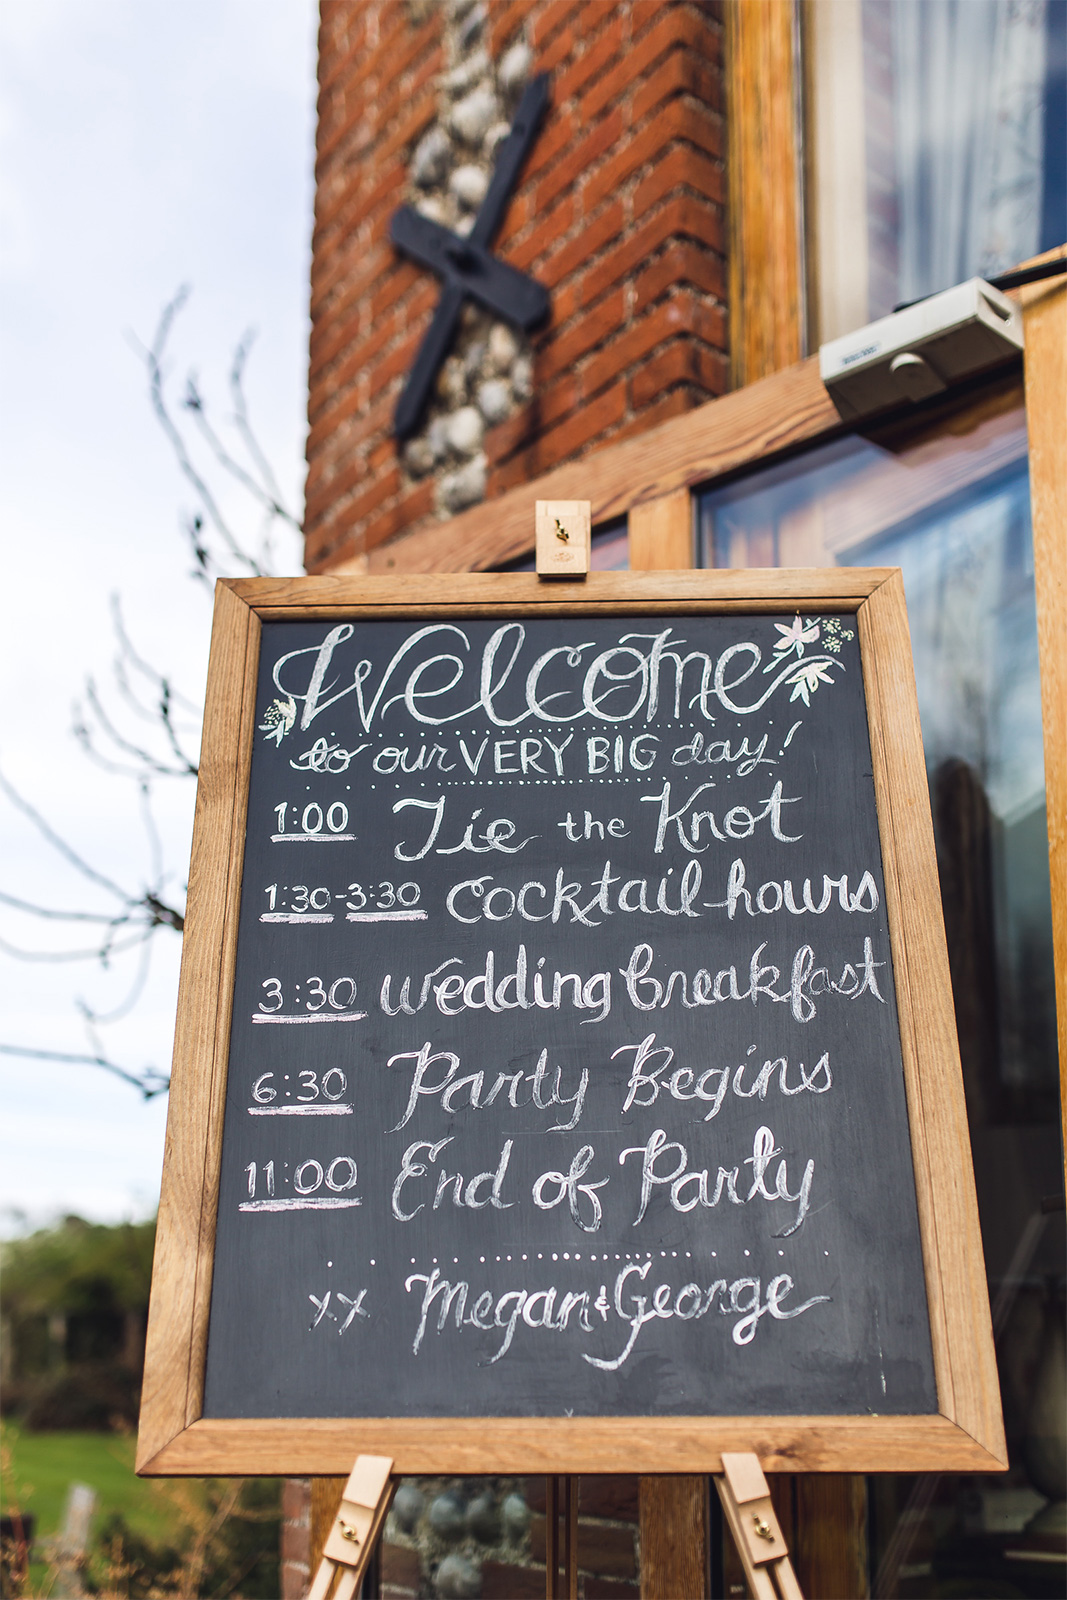 Welcome
to our VERY BIG day!
1:00 Tie the Knot
1:30-3:30 cocktail hours
3:30 wedding breakfast
6:30 Party Begins
11:00 End of Party
xx Megan & George